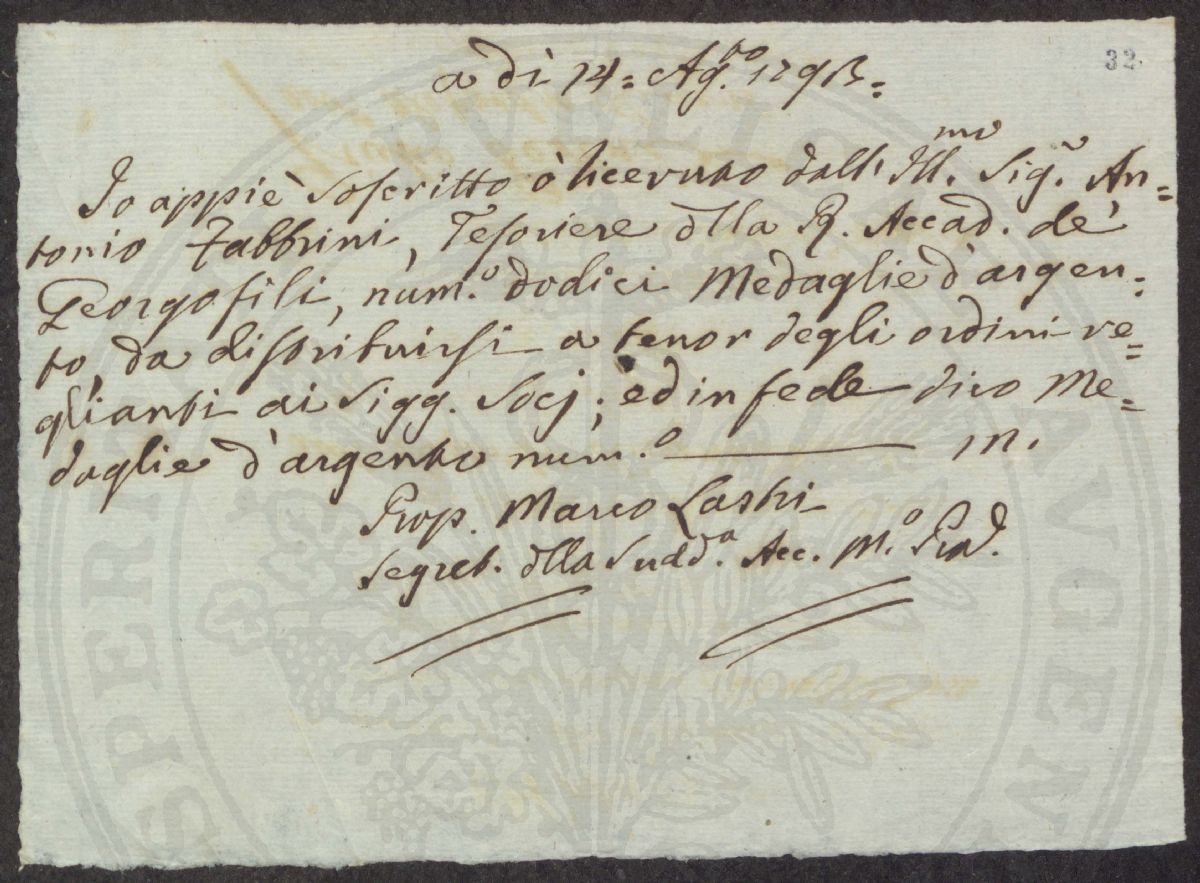 32
a dì 14= Ag.to 1793=
Io appiè Soscritto ò ricevuto dall' Ill.mo Sig.r An=
tonio Fabbrini, Tesoriere dlla R. Accad. de'
Georgofili, num.o dodici Medaglie d'argen=
to, da distribuirsi a tenor degli ordini ve=
glianti ai Sigg. Socj; ed in fede dico Me=
daglie d'argento num.o
Prop. Marco Lastri
Segret. dlla Sudd.a Acc. M.o Pro.
PUBLICAE
PROSPERITATI
AUGENDAE